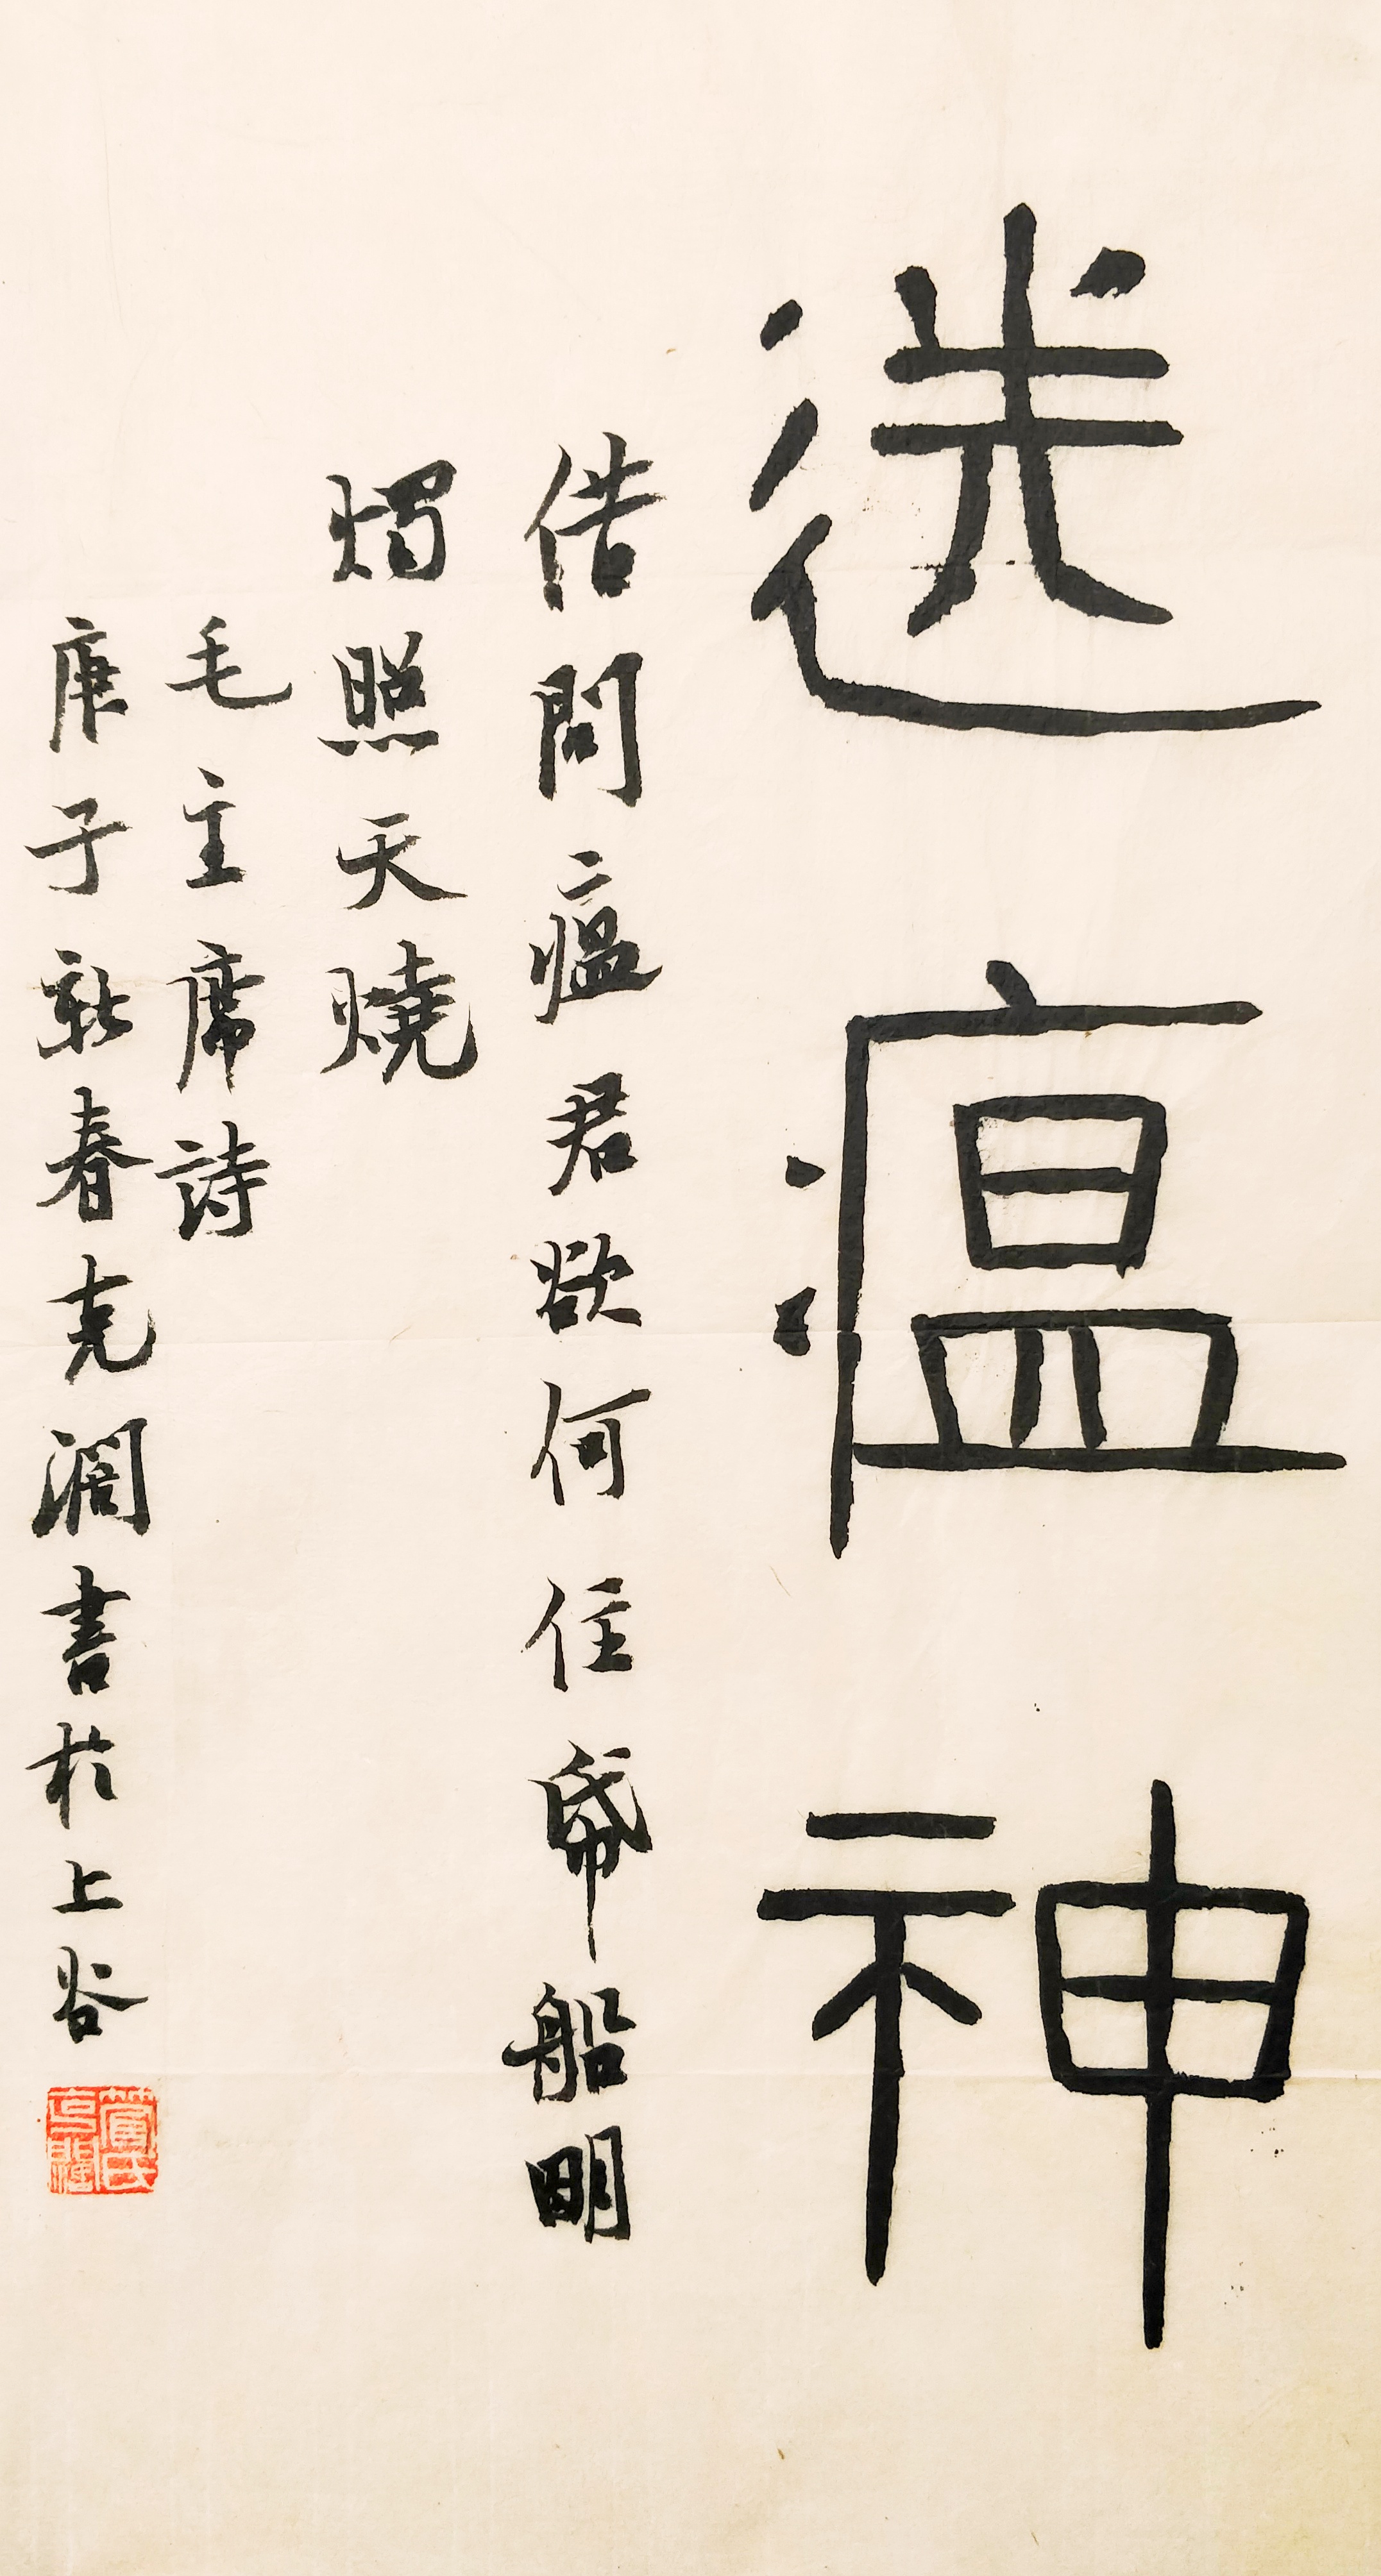 送瘟神
借問瘟君欲何往帋船明
燭照天燒
毛主席詩
庚子新春克濶書於上谷